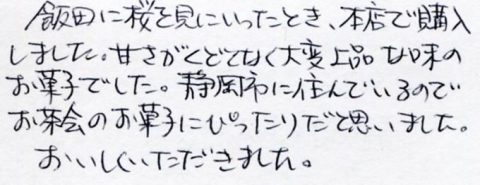 飯田に桜を見にいったとき、本店で購入
しました。甘さがくどくなく大変上品な味の
お菓子でした。静岡市に住んでいるので
お茶会のお菓子にぴったりだと思いました。
おいしくいただきました。